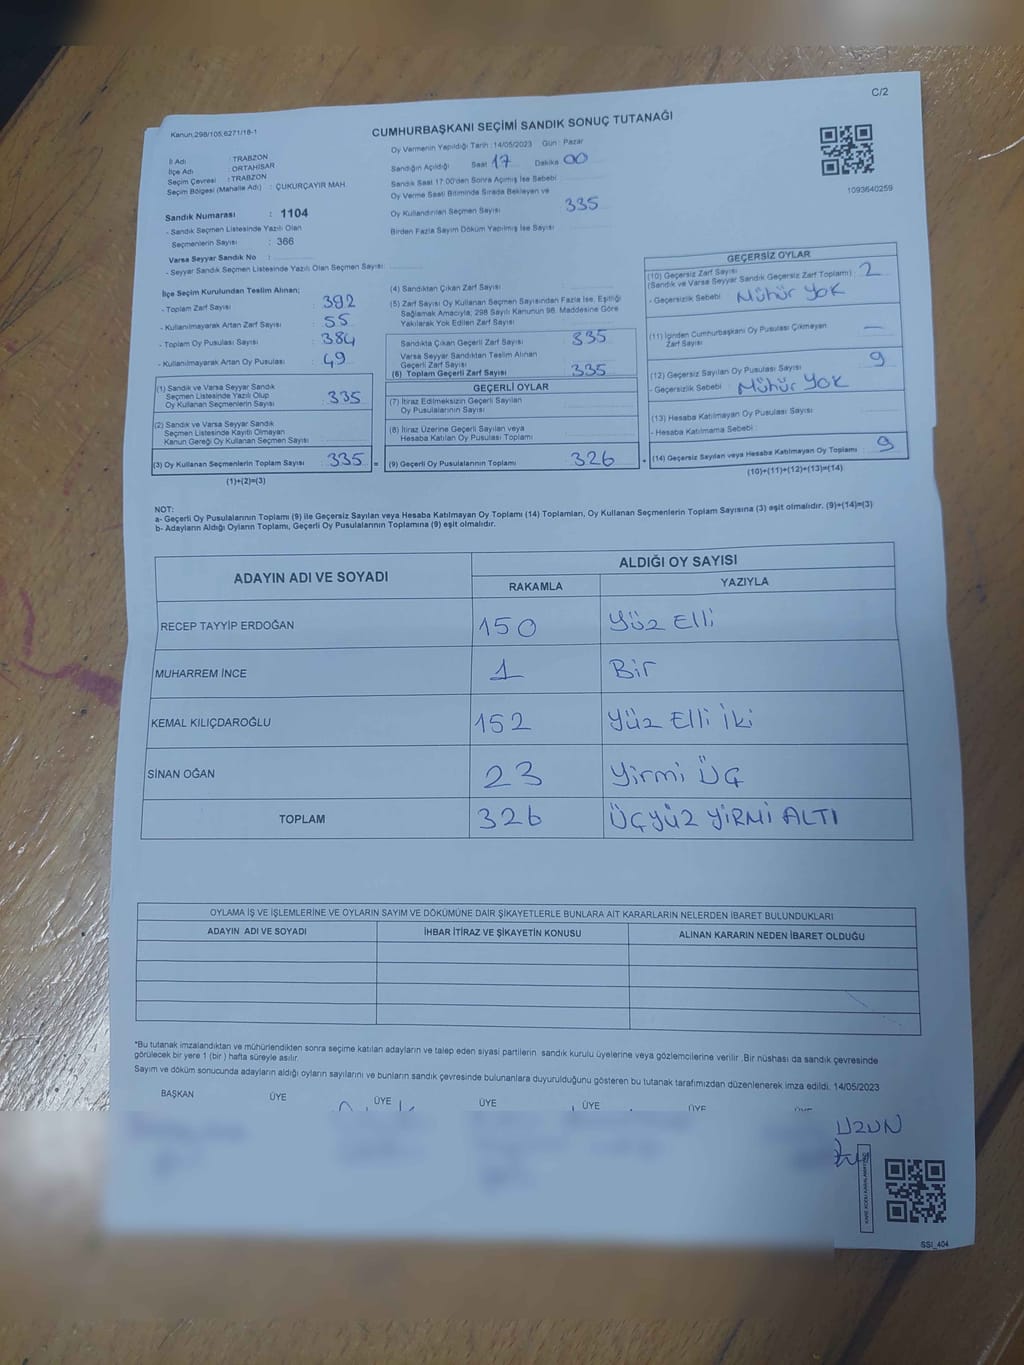 C/2
Kanun:298/105;6271/18-1
CUMHURBAŞKANI SEÇİMİ SANDIK SONUÇ TUTANAĞI
İl Adı : TRABZON
İlçe Adı : ORTAHİSAR
Seçim Çevresi : TRABZON
Seçim Bölgesi (Mahalle Adı) : ÇUKURÇAYIR MAH.
Sandık Numarası : 1104
- Sandık Seçmen Listesinde Yazılı Olan
Seçmenlerin Sayısı : 366
Varsa Seyyar Sandık No :
- Seyyar Sandık Seçmen Listesinde Yazılı Olan Seçmen Sayısı :
Oy Vermenin Yapıldığı Tarih : 14/05/2023 Gün : Pazar
Sandığın Açıldığı Saat 17 Dakika 00
Sandık Saat 17:00'den Sonra Açılmış İse Sebebi :
Oy Verme Saati Bitiminde Sırada Bekleyen ve
Oy Kullandırılan Seçmen Sayısı 335
Birden Fazla Sayım Döküm Yapılmış İse Sayısı :
1093640259
İlçe Seçim Kurulundan Teslim Alınan;
- Toplam Zarf Sayısı : 392
- Kullanılmayarak Artan Zarf Sayısı : 55
- Toplam Oy Pusulası Sayısı : 384
- Kullanılmayarak Artan Oy Pusulası : 49
(1) Sandık ve Varsa Seyyar Sandık
Seçmen Listesinde Yazılı Olup
Oy Kullanan Seçmenlerin Sayısı : 335
(2) Sandık ve Varsa Seyyar Sandık
Seçmen Listesinde Kayıtlı Olmayan
Kanun Gereği Oy Kullanan Seçmen Sayısı :
(3) Oy Kullanan Seçmenlerin Toplam Sayısı : 335 =
(1)+(2)=(3)
(4) Sandıktan Çıkan Zarf Sayısı :
(5) Zarf Sayısı Oy Kullanan Seçmen Sayısından Fazla İse, Eşitliği
Sağlamak Amacıyla; 298 Sayılı Kanunun 98. Maddesine Göre
Yakılarak Yok Edilen Zarf Sayısı :
Sandıkta Çıkan Geçerli Zarf Sayısı : 335
Varsa Seyyar Sandıktan Teslim Alınan
Geçerli Zarf Sayısı :
(6) Toplam Geçerli Zarf Sayısı : 335
GEÇERLİ OYLAR
(7) İtiraz Edilmeksizin Geçerli Sayılan
Oy Pusulalarının Sayısı :
(8) İtiraz Üzerine Geçerli Sayılan veya
Hesaba Katılan Oy Pusulası Toplamı :
(9) Geçerli Oy Pusulalarının Toplamı : 326 +
GEÇERSİZ OYLAR
(10) Geçersiz Zarf Sayısı
(Sandık ve Varsa Seyyar Sandık Geçersiz Zarf Toplamı) : 2
- Geçersizlik Sebebi : Mühür Yok
(11) İçinden Cumhurbaşkanı Oy Pusulası Çıkmayan
Zarf Sayısı : —
(12) Geçersiz Sayılan Oy Pusulası Sayısı : 9
- Geçersizlik Sebebi : Mühür Yok
(13) Hesaba Katılmayan Oy Pusulası Sayısı :
- Hesaba Katılmama Sebebi :
(14) Geçersiz Sayılan veya Hesaba Katılmayan Oy Toplamı : 9
(10)+(11)+(12)+(13)=(14)
NOT:
a- Geçerli Oy Pusulalarının Toplamı (9) ile Geçersiz Sayılan veya Hesaba Katılmayan Oy Toplamı (14) Toplamları, Oy Kullanan Seçmenlerin Toplam Sayısına (3) eşit olmalıdır. (9)+(14)=(3)
b- Adayların Aldığı Oyların Toplamı, Geçerli Oy Pusulalarının Toplamına (9) eşit olmalıdır.
ADAYIN ADI VE SOYADI ALDIĞI OY SAYISI
RAKAMLA YAZIYLA
RECEP TAYYİP ERDOĞAN 150 Yüz Elli
MUHARREM İNCE 1 Bir
KEMAL KILIÇDAROĞLU 152 Yüz Elli İki
SİNAN OĞAN 23 Yirmi Üç
TOPLAM 326 ÜÇYÜZ YİRMİ ALTI
OYLAMA İŞ VE İŞLEMLERİNE VE OYLARIN SAYIM VE DÖKÜMÜNE DAİR ŞİKAYETLERLE BUNLARA AİT KARARLARIN NELERDEN İBARET BULUNDUKLARI
ADAYIN ADI VE SOYADI İHBAR İTİRAZ VE ŞİKAYETİN KONUSU ALINAN KARARIN NEDEN İBARET OLDUĞU
*Bu tutanak imzalandıktan ve mühürlendikten sonra seçime katılan adayların ve talep eden siyasi partilerin sandık kurulu üyelerine veya gözlemcilerine verilir .Bir nüshası da sandık çevresinde
görülecek bir yere 1 (bir ) hafta süreyle asılır.
Sayım ve döküm sonucunda adayların aldığı oyların sayılarını ve bunların sandık çevresinde bulunanlara duyurulduğunu gösteren bu tutanak tarafımızdan düzenlenerek imza edildi. 14/05/2023
BAŞKAN ÜYE ÜYE ÜYE ÜYE ÜYE
UZUN
SSI_404